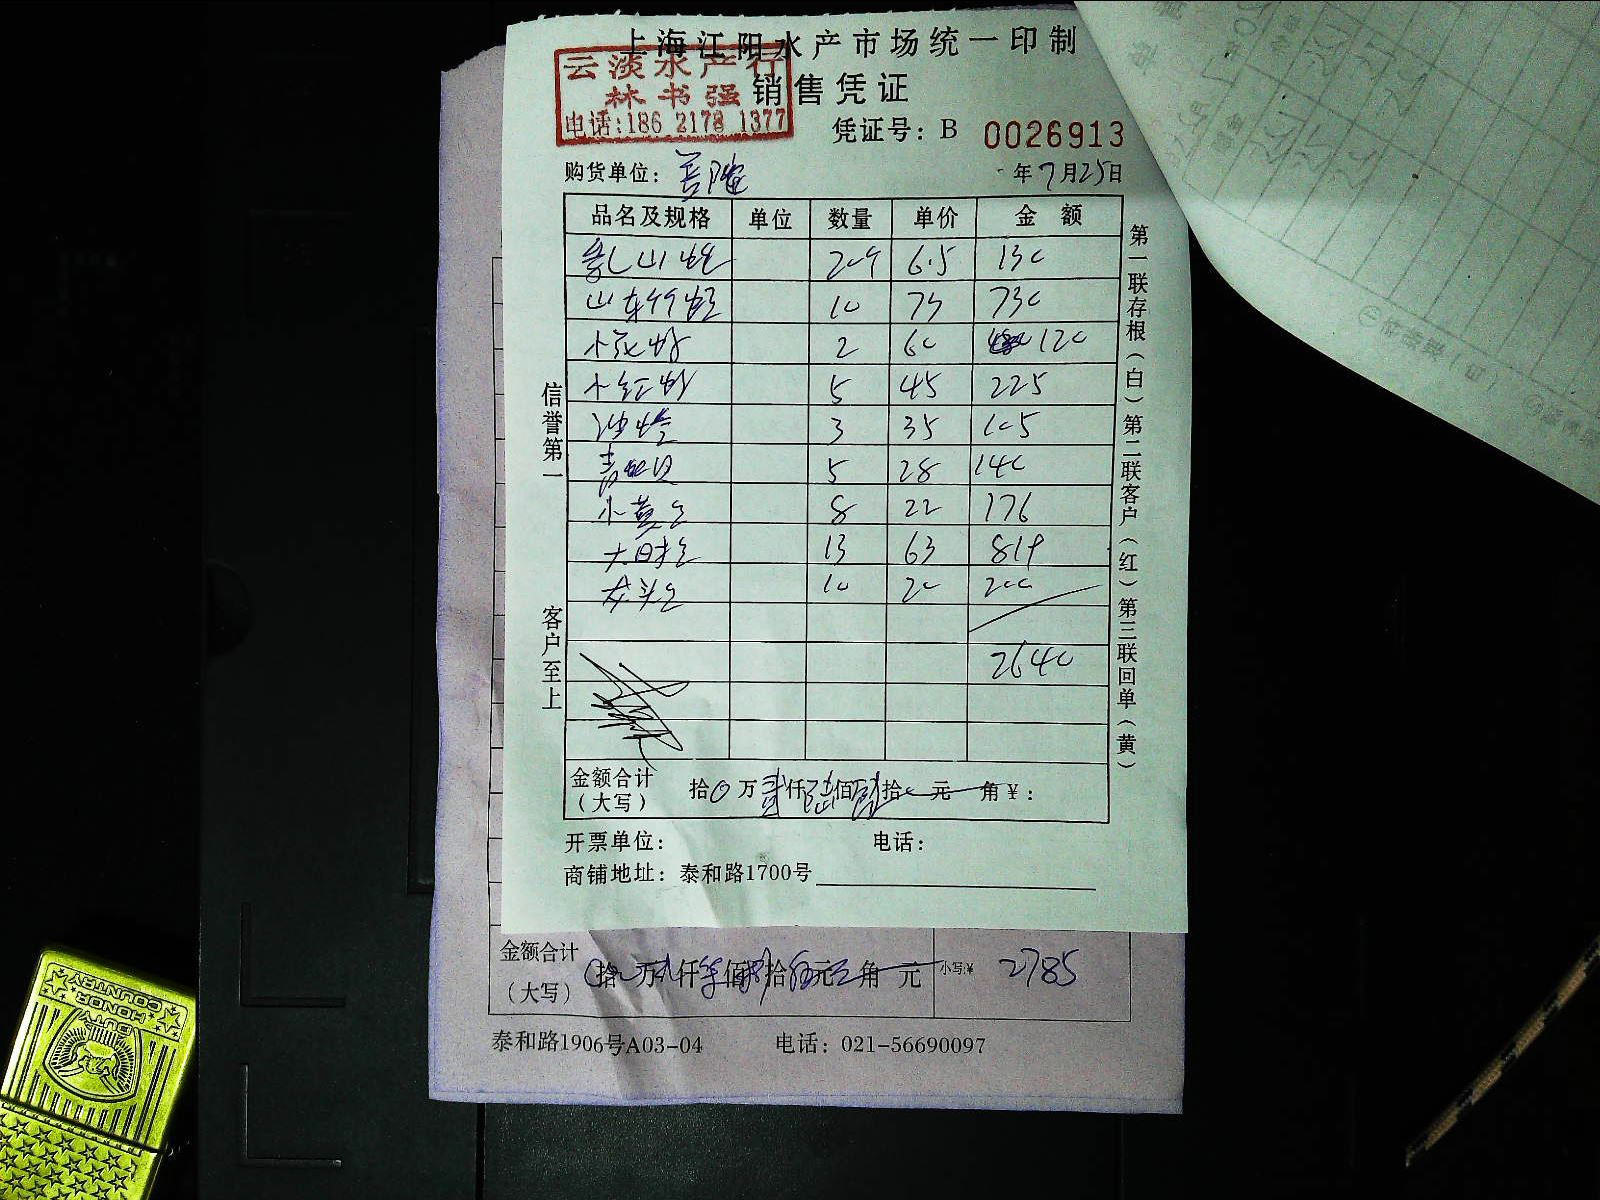 上海江阳水产市场统一印制
云淡水产行
林书强
电话:186 2178 1377
销售凭证
凭证号：B 0026913
购货单位：
年7月25日
品名及规格 单位 数量 单价 金额
乳山蚝 20个 6.5 130
山东竹蛏 10 73 730
小花蛤 2 60 120
小红蛤 5 45 225
沙蛤 3 35 105
青口贝 5 28 140
小黄鱼 8 22 176
大目鱼 13 63 819
龙头鱼 10 20 200
2640
金额合计（大写） 拾0万贰仟陆佰肆拾元角￥：
开票单位： 电话：
商铺地址：泰和路1700号
信誉第一 客户至上
第一联存根（白）第二联客户（红）第三联回单（黄）
金额合计（大写） 拾万仟佰拾元角元 小写￥ 2785
泰和路1906号A03-04 电话：021-56690097
HONOR
COUNTRY
DUTY